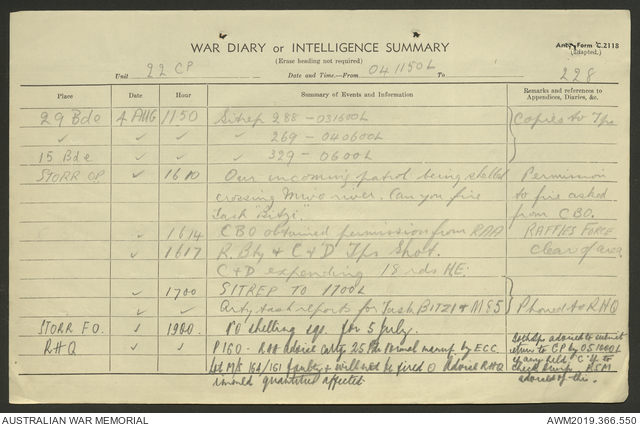 WAR DIARY or INTELLIGENCE SUMMARY
(Erase heading not required)
Army Form C.2118
(Adapted.)
Unit 22 CP Date and Time.—From 041150L To
228
Place Date Hour Summary of Events and Information Remarks and references to Appendices, Diaries, &c.
29 Bde 4 AUG 1150 Sitrep 288 - 031600L Copies to Tps
✓ ✓ ✓ 269 - 040600L
15 Bde ✓ ✓ 329 - 0600L
STORR OP ✓ 1610 Our incoming patrol being shelled Permission
crossing Mivo river. Can you fire to fire asked
Task "Bitzi". from CBO.
✓ 1614 CBO obtained permission from RAA RATTLES FORCE
✓ 1617 R. Bty & C & D Tps Shot. clear of area
C & D expending 18 rds HE.
✓ 1700 SITREP TO 1700L
✓ ✓ Arty task reports for Task BITZI & M65 Phoned to RHQ
STORR F.O. ✓ 1900. shelling for 5 July.
RHQ ✓ ✓ P160 - RAA advise 25 Pr by ECC. advised to submit
Lot 164/161 faulty & will not be fired Advise RHQ return to CP by 051000L
quantities affected if any held.
RSM
advised
AUSTRALIAN WAR MEMORIAL AWM2019.366.550